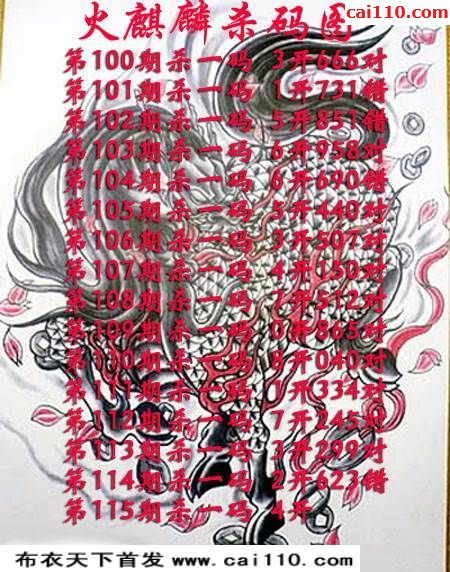 cai110.com
火麒麟杀码图
第100期杀一码 3开666对
第101期杀一码 1开731错
第102期杀一码 5开851错
第103期杀一码 6开958对
第104期杀一码 6开690错
第105期杀一码 5开440对
第106期杀一码 3开507对
第107期杀一码 4开150对
第108期杀一码 7开512对
第109期杀一码 0开865对
第110期杀一码 8开040对
第111期杀一码 1开334对
第112期杀一码 7开245对
第113期杀一码 3开299对
第114期杀一码 2开623错
第115期杀一码 4开
布衣天下首发 www.cai110.com